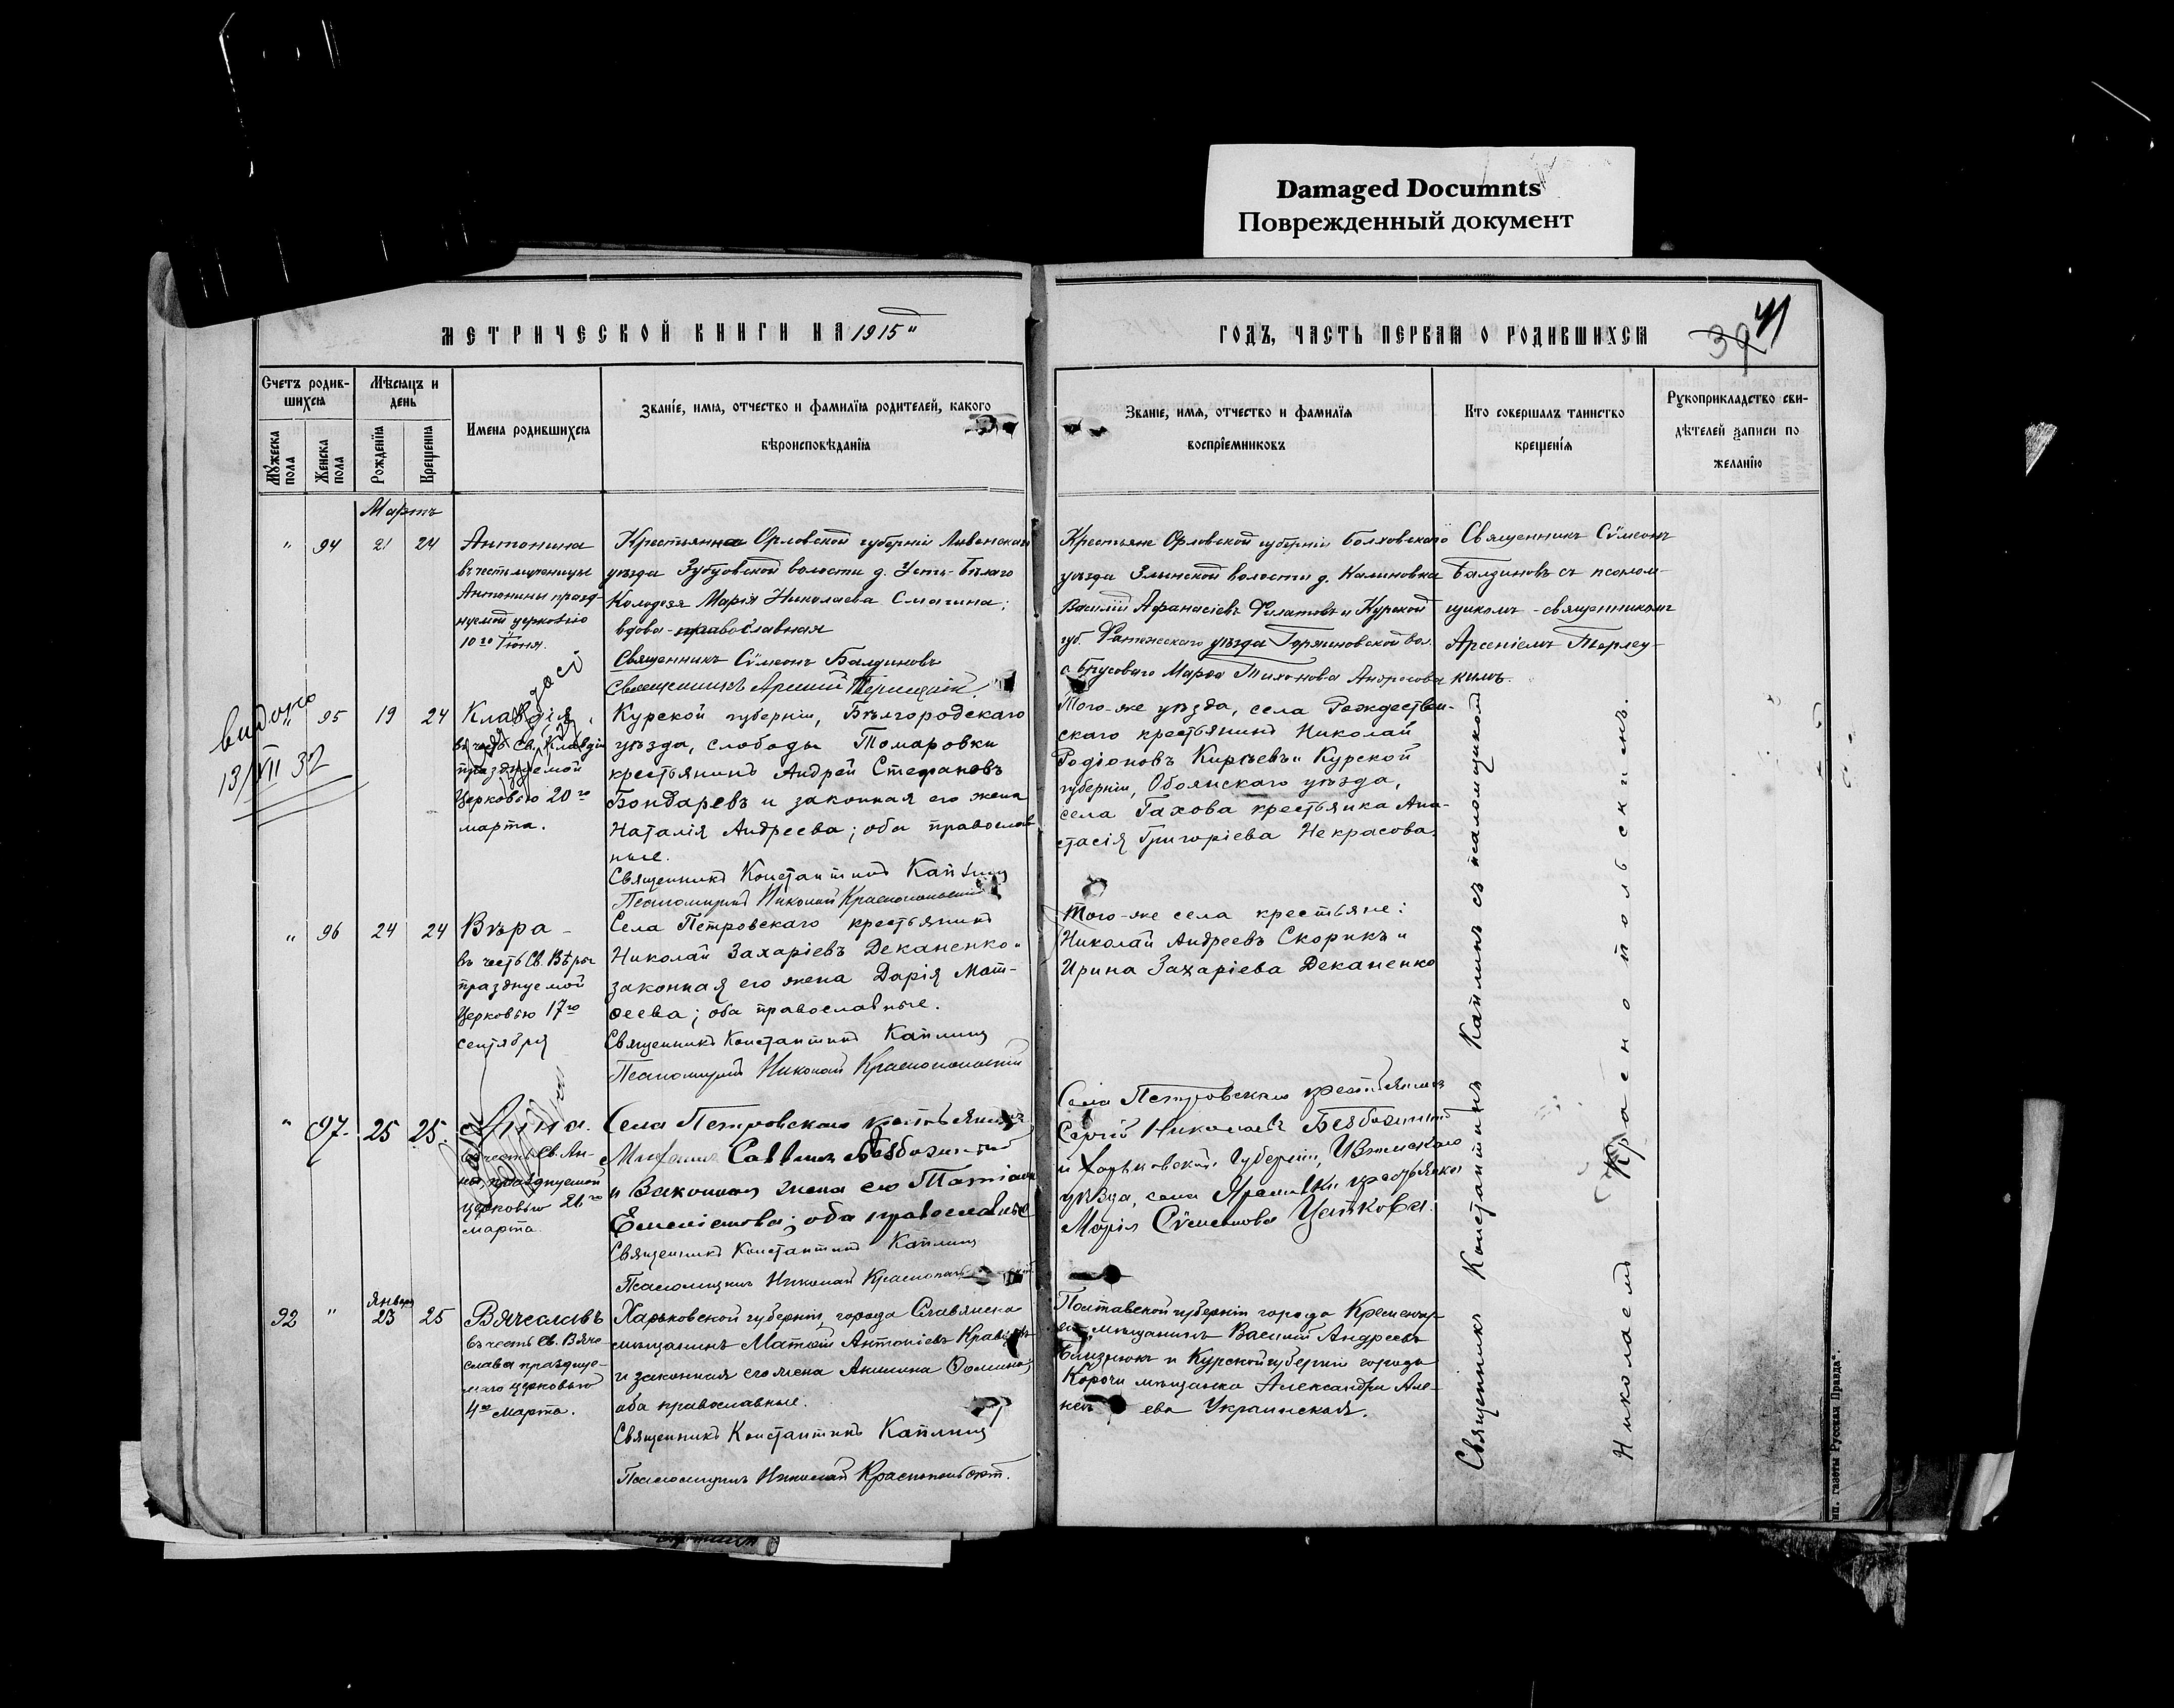 Damaged Documnts
Поврежденный документ
МЕТРИЧЕСКОЙ КНИГИ НА 1915
ГОДЪ, ЧАСТЬ ПЕРВАЯ О РОДИВШИХСЯ
39
41
Счетъ родив-
шихся
Мѣсяцъ и
день
Мужеска
пола
Женска
пола
Рожденія
Крещенія
Имена родившихся
Званіе, имя, отчество и фамилія родителей, какого
вѣроисповѣданія
Званіе, имя, отчество и фамилія
воспріемниковъ
Кто совершалъ таинство
крещенія
Рукоприкладство сви-
дѣтелей записи по
желанію
Мартъ
" 94 21 24
Антонина
въ честь мученицы
Антонины празд-
нуемой церковью
10го Іюня.
Крестьянка Орловской губерніи Ливенскаго
уѣзда Зубцовской волости д. Усть-Бѣлаго
Колодезя Марія Николаева Смагина;
вдова - православная
Священникъ Сѵмеонъ Балдиновъ
Священникъ Арсеній
Крестьяне Орловской губерніи Болховскаго
уѣзда Злынской волости д. Калиновка
Василій Афанасіевъ Филатовъ и Курской
губ. Фатежскаго уѣзда вол.
с. Брусоваго Марѳа Тихонова Андросова
Священникъ Сѵмеонъ
Балдиновъ съ псалом-
щикомъ - священникомъ
Арсеніемъ
кимъ.
выдано
13/VII 32
" 95 19 24
Клавдія
въ честь Св. Клавдіи
празднуемой
Церковью 20го
марта.
Курской губерніи, Бѣлгородскаго
уѣзда, слободы Томаровки
крестьянинъ Андрей Стефановъ
Бондаревъ и законная его жена
Наталія Андреева; оба православ
ные.
Священникъ Константинъ Каплинъ
Псаломщикъ Николай Краснопольскій
Того-же уѣзда, села Рождествен-
скаго крестьянинъ Николай
Родіоновъ Кирѣевъ и Курской
губерніи, Обоянскаго уѣзда,
села Гахова крестьянка Ана-
стасія Григоріева Некрасова.
" 96 24 24
Вѣра
въ честь Св. Вѣры
празднуемой
Церковью 17го
сентября
Села Петровскаго крестьянинъ
Николай Захаріевъ Деканенко и
законная его жена Дарія Мат-
ѳеева; оба православные.
Священникъ Константинъ Каплинъ
Псаломщикъ Николай Краснопольскій
Того-же села крестьяне:
Николай Андреевъ Скорикъ и
Ирина Захаріева Деканенко
" 97. 25 25.
Анна.
въ честь Св. Ан-
ны, празднуемой
церковью 26го
марта.
Села Петровскаго крестьянинъ
Саввинъ Безбожный
и законная жена его Татіана
оба православные
Священникъ Константинъ Каплинъ
Псаломщикъ Николай Краснопольскій
Села Петровскаго крестьянинъ
Сергій Николаевъ Безбожный
и Харьковской губерніи, Изюмскаго
уѣзда, села крестьянка
Марія Сѵмеонова Цапкова.
92 " Январь 23 25
Вячеславъ
въ честь Св. Вяче-
слава празднуе-
маго церковью
4го Марта.
Харьковской губерніи, города Славянска
мѣщанинъ Матѳей Антоніевъ
и законная его жена Акилина Ѳомина;
оба православные.
Священникъ Константинъ Каплинъ
Псаломщикъ Николай Краснопольскій.
Полтавской губерніи города Кременчу-
га мѣщанинъ Василій Андреевъ
Близнюкъ и Курской губерніи города
Корочи мѣщанка Александра Але-
ксѣева Украинская.
Священникъ Константинъ Каплинъ съ псаломщикомъ
Николаемъ Краснопольскимъ.
тип. газеты „Русская Правда“.